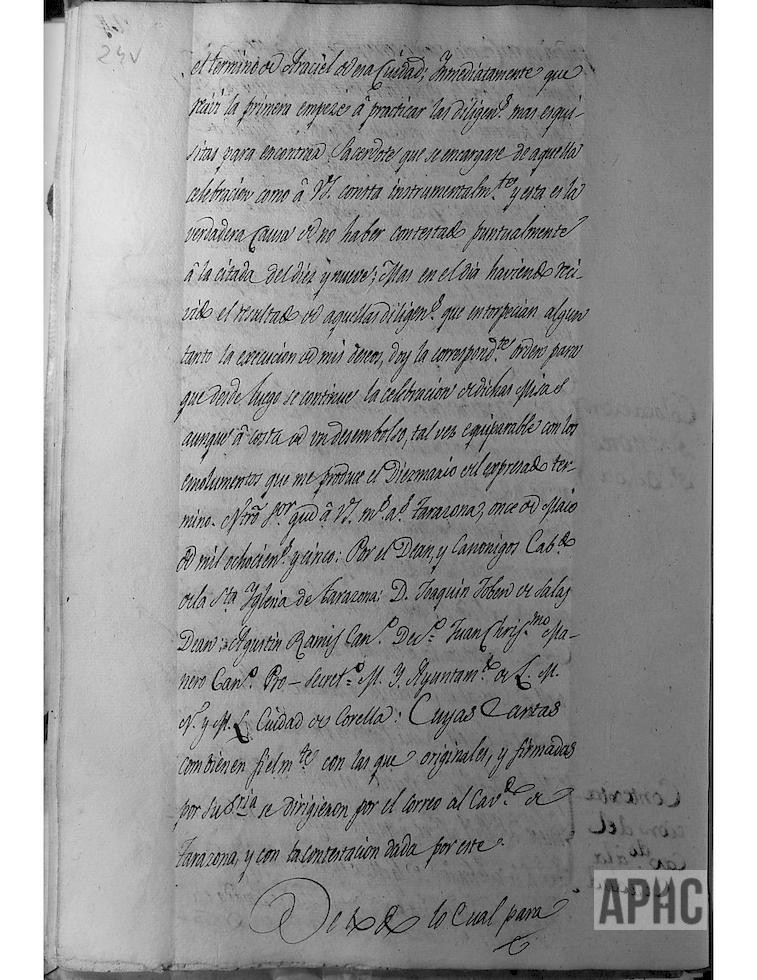 24v
el termino de Araciel de esa Ciudad; Inmediatamente que
recivi la primera empezé â practicar las diligen.s mas esqui-
sitas para encontrar Sacerdote que se encargase de aquella
celebracion como â V.I. consta instrumentalm.te y esta es la
verdadera Causa de no haber contestado puntualmente
â la citada del diez y nueve; Mas en el dia haviendo reci-
vido el resultado de aquellas diligen.s que entorpecian algun
tanto la execucion de mis deseos, doy la correspond.te orden para
que desde luego se continue la celebracion de dichas Misas
aunque â costa de un desembolso, tal vez equiparable con los
emolumentos que me produce el Diezmario del expresado ter-
mino. Ntrô S.or gue â V.I. m.s a.s Tarazona, once de Maio
de mil ochocien.s y cinco: Por el Dean, y Canonigos Cab.do
de la S.ta Iglesia de Tarazona: D. Joaquin de Salas
Dean: Agustin Ramis Can.o Juan Chris.mo Ma-
nero Can.o Pro-Secret.o M. Y. Ayuntam.to de L. M.
N. y M. L. Ciudad de Corella: Cuyas Cartas
combienen fielm.te con las que originales, y firmadas
por su Sria se dirigieron por el correo al Cav.do de
Tarazona, y con la contestacion dada por este
De todo lo Cual para
Contesta
cion del
Cav.do
APHC